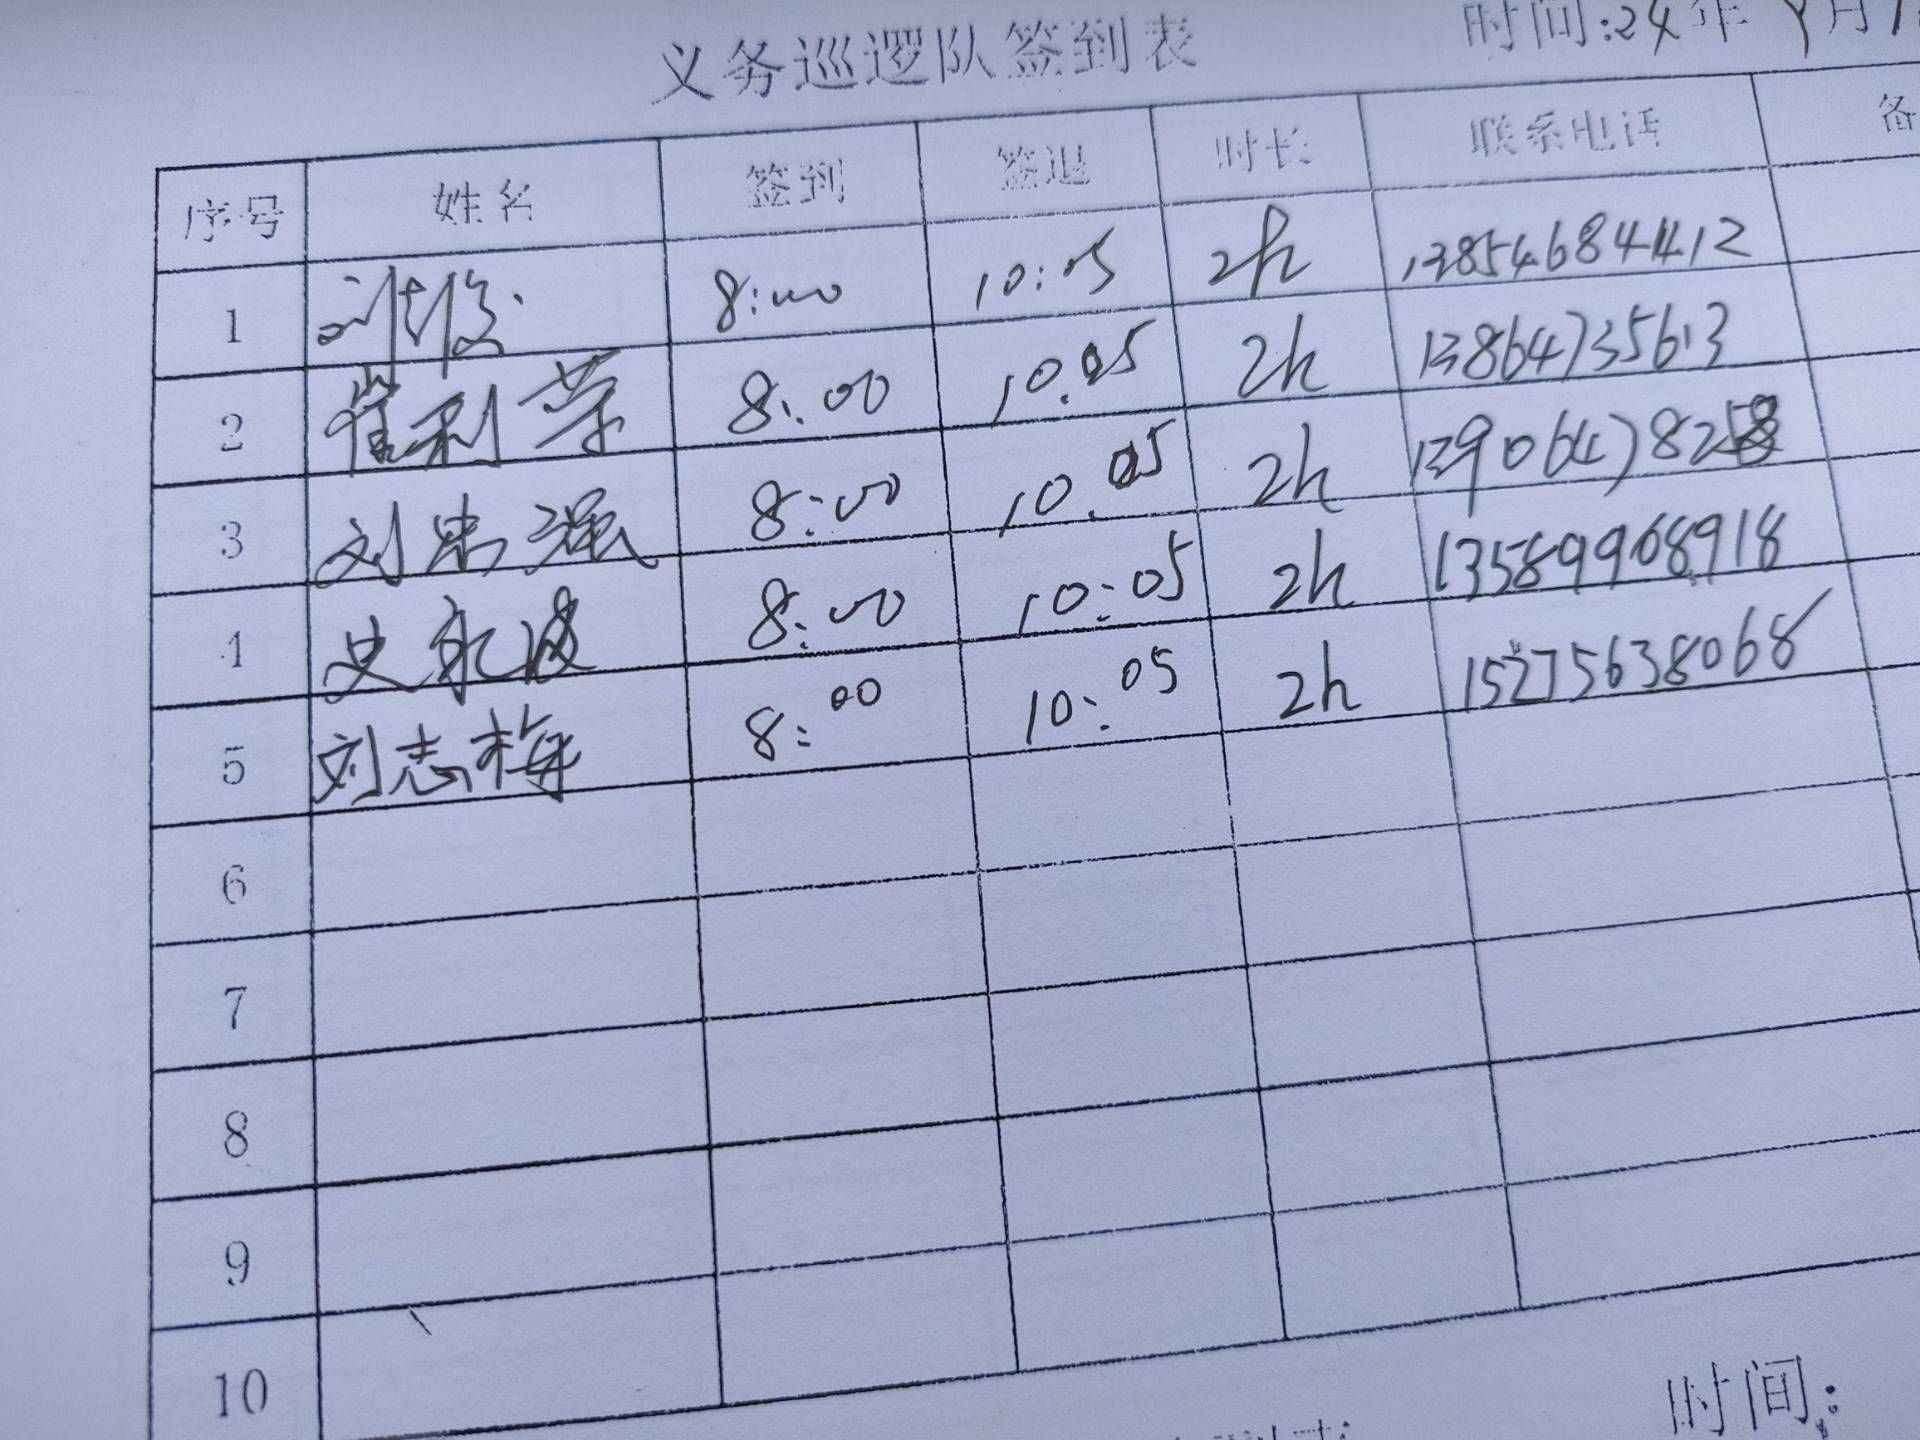 义务巡逻队签到表
时间:24年 9月1
序号 姓名 签到 签退 时长 联系电话 备
1 8:00 10:05 2h 13854684412
2 崔利荣 8:00 10:05 2h 13864735613
3 刘忠强 8:00 10:05 2h
4 史永波 8:00 10:05 2h 13589968918
5 刘志梅 8:00 10:05 2h 15275638068
6
7
8
9
10
时间: